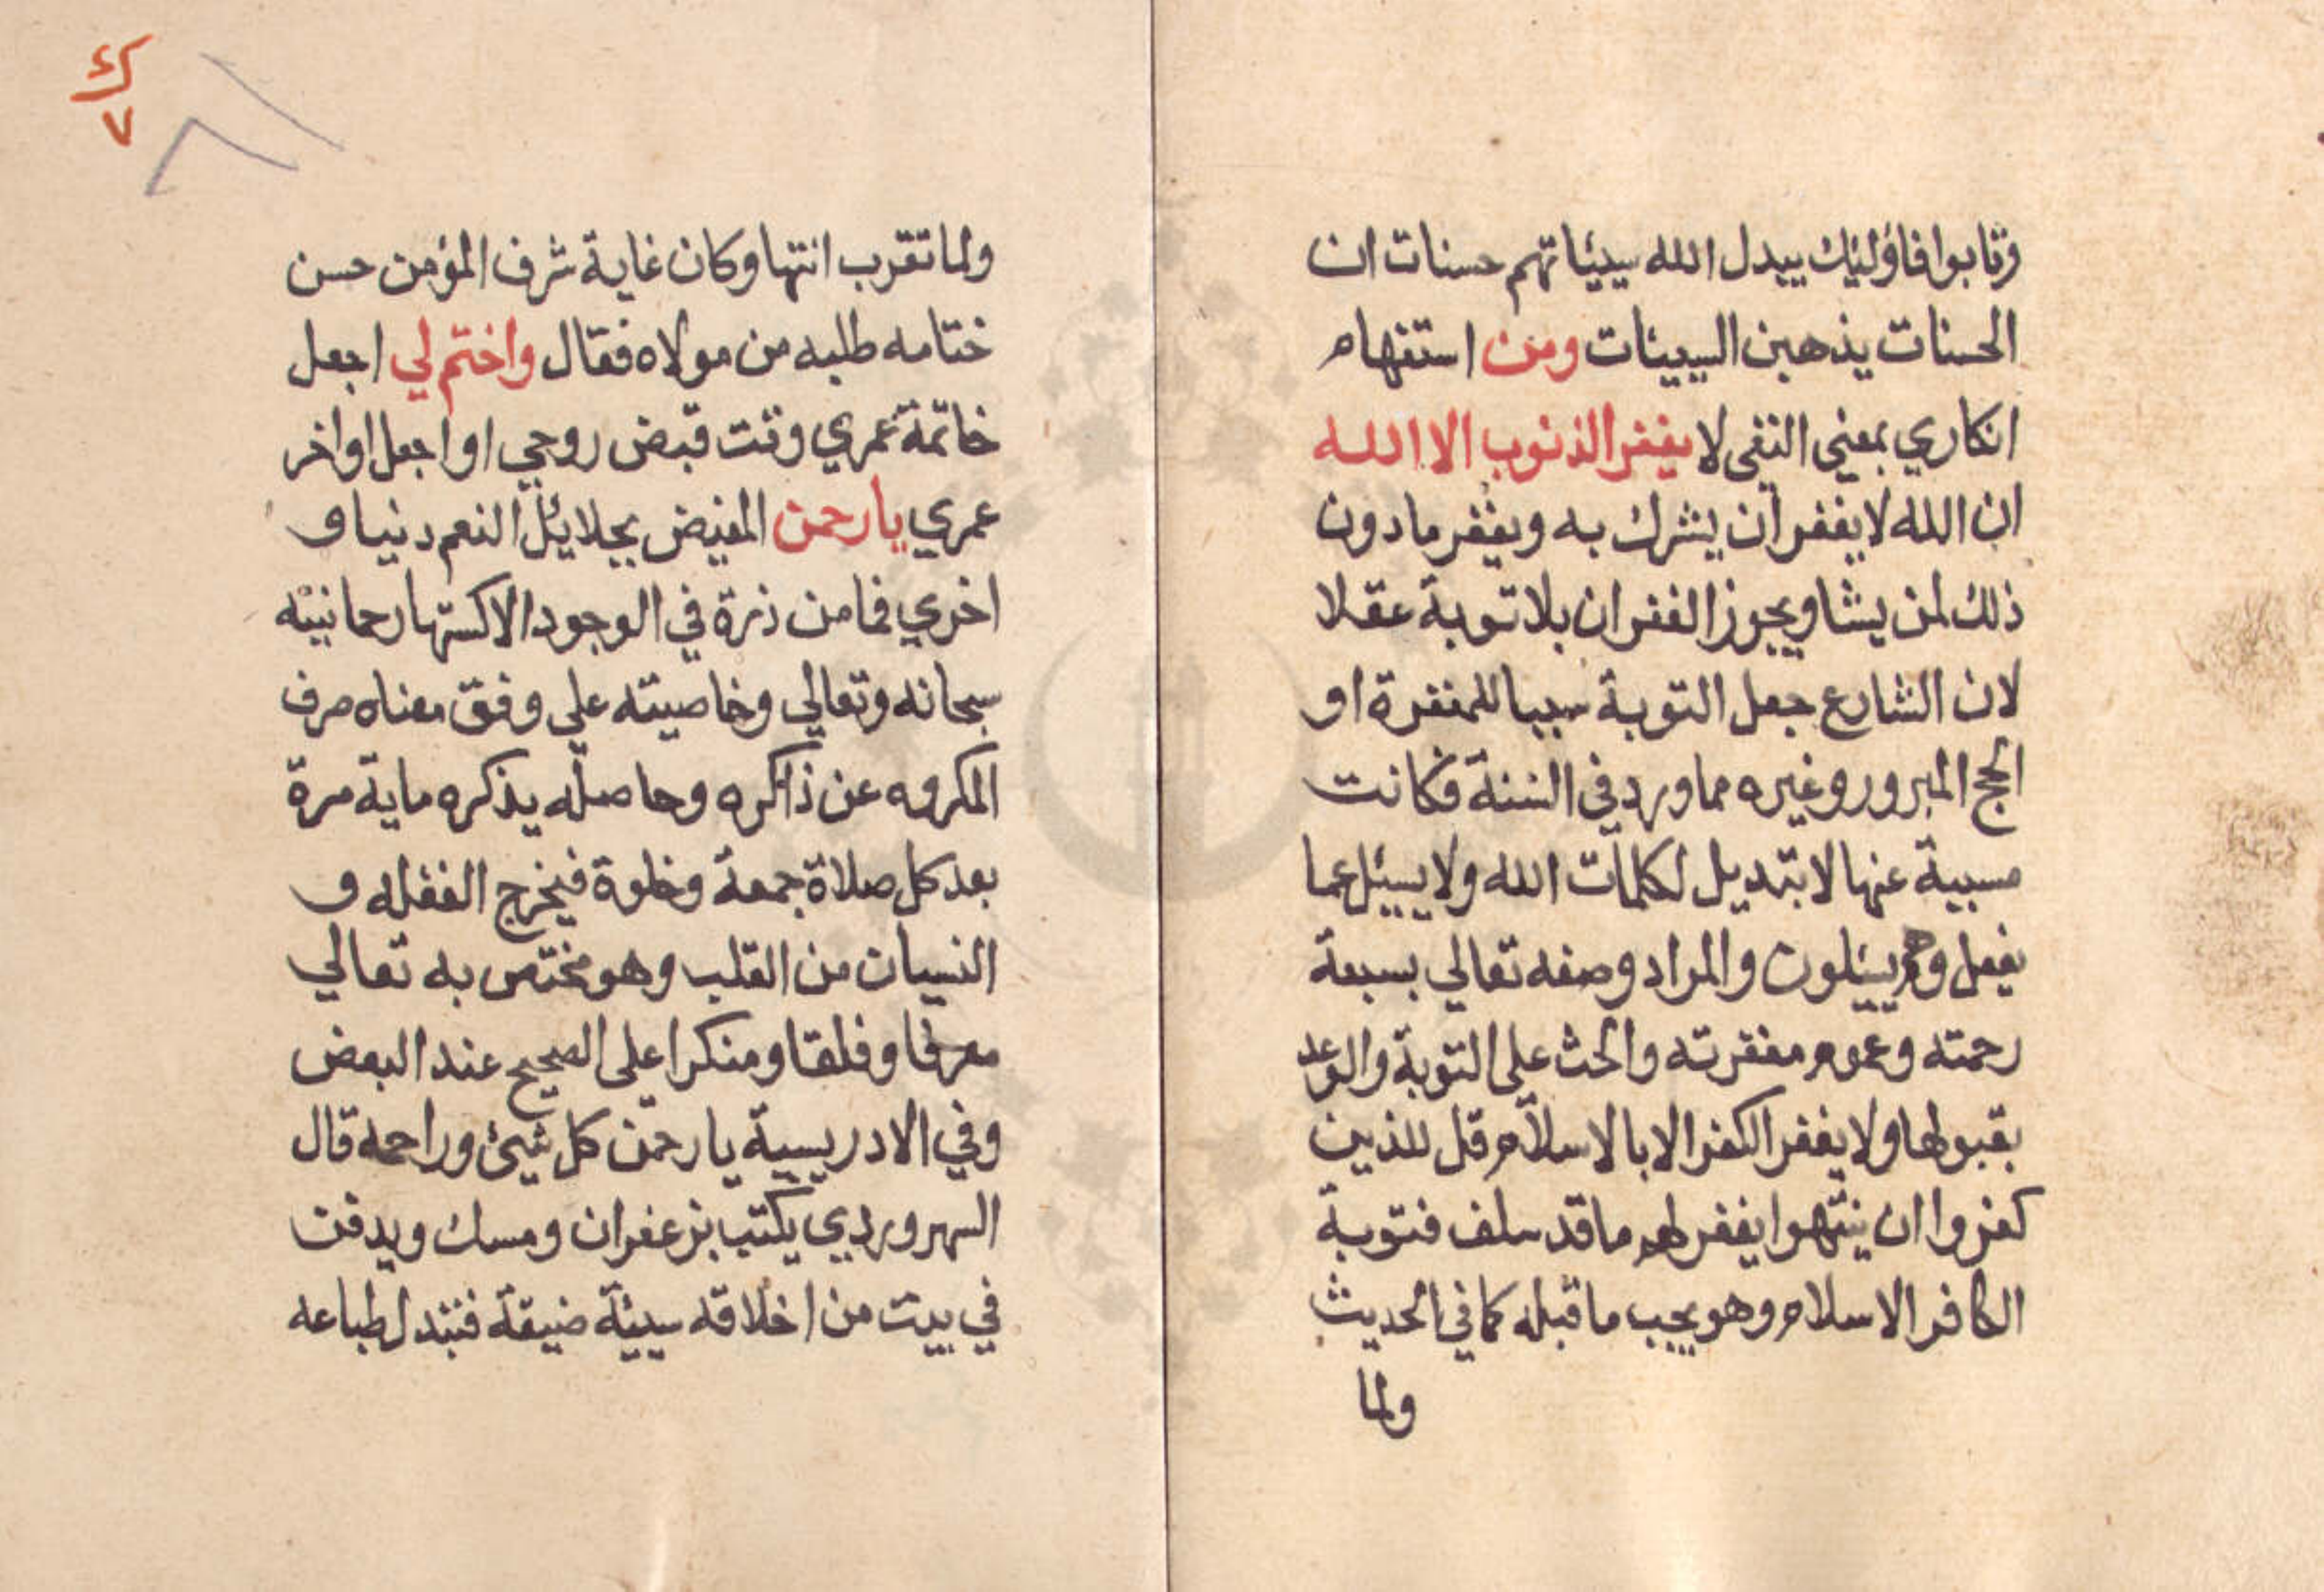 وتابوا فاؤليك يبدل الله سيئاتهم حسنات ان
الحسنات يذهبن السيئات ومن استفهام
انكاري بمعني النفى لا يغفر الذنوب الا الله
ان الله لا يغفر ان يشرك به ويغفر ما دون
ذلك لمن يشا ويجوز الغفران بلا توبة عقلا
لان الشارع جعل التوبة سببا للمغفرة او
الحج المبرور وغيره مما ورد في السنة فكانت
مسببة عنها لا تبديل لكلمات الله ولا يسئل عما
يفعل وهم يسئلون والمراد وصفه تعالي بسعة
رحمته وعموم مغفرته والحث على التوبة والوعد
بقبولها ولا يغفر الكفر الا بالاسلام قل للذين
كفروا ان ينتهوا يغفر لهم ما قد سلف فتوبة
الكافر الاسلام وهو يجب ما قبله كما في الحديث
ولما
٧
ولما تقرب انتها وكان غاية شرف المؤمن حسن
ختامه طلبه من مولاه فقال واختم لي اجعل
خاتمة عمري وقت قبض روحي او اجعل اواخر
عمري يا رحمن المفيض بجلايل النعم دنيا و
اخري فما من ذرة في الوجود الا كستها رحمانيته
سبحانه وتعالي وخاصيته علي وفق معناه صرف
المكروه عن ذاكره وحاصله يذكره ماية مرة
بعد كل صلاة جمعة وخلوة فيخرج الغفله و
النسيان من القلب وهو مختص به تعالي
معرفا ومنكرا على الصحيح عند البعض
وفي الادريسية يا رحمن كل شيئ وراحمه قال
السهروردي يكتب بزعفران ومسك ويدفن
في بيت من اخلاقه سيئة ضيقة فتبتدل طباعه